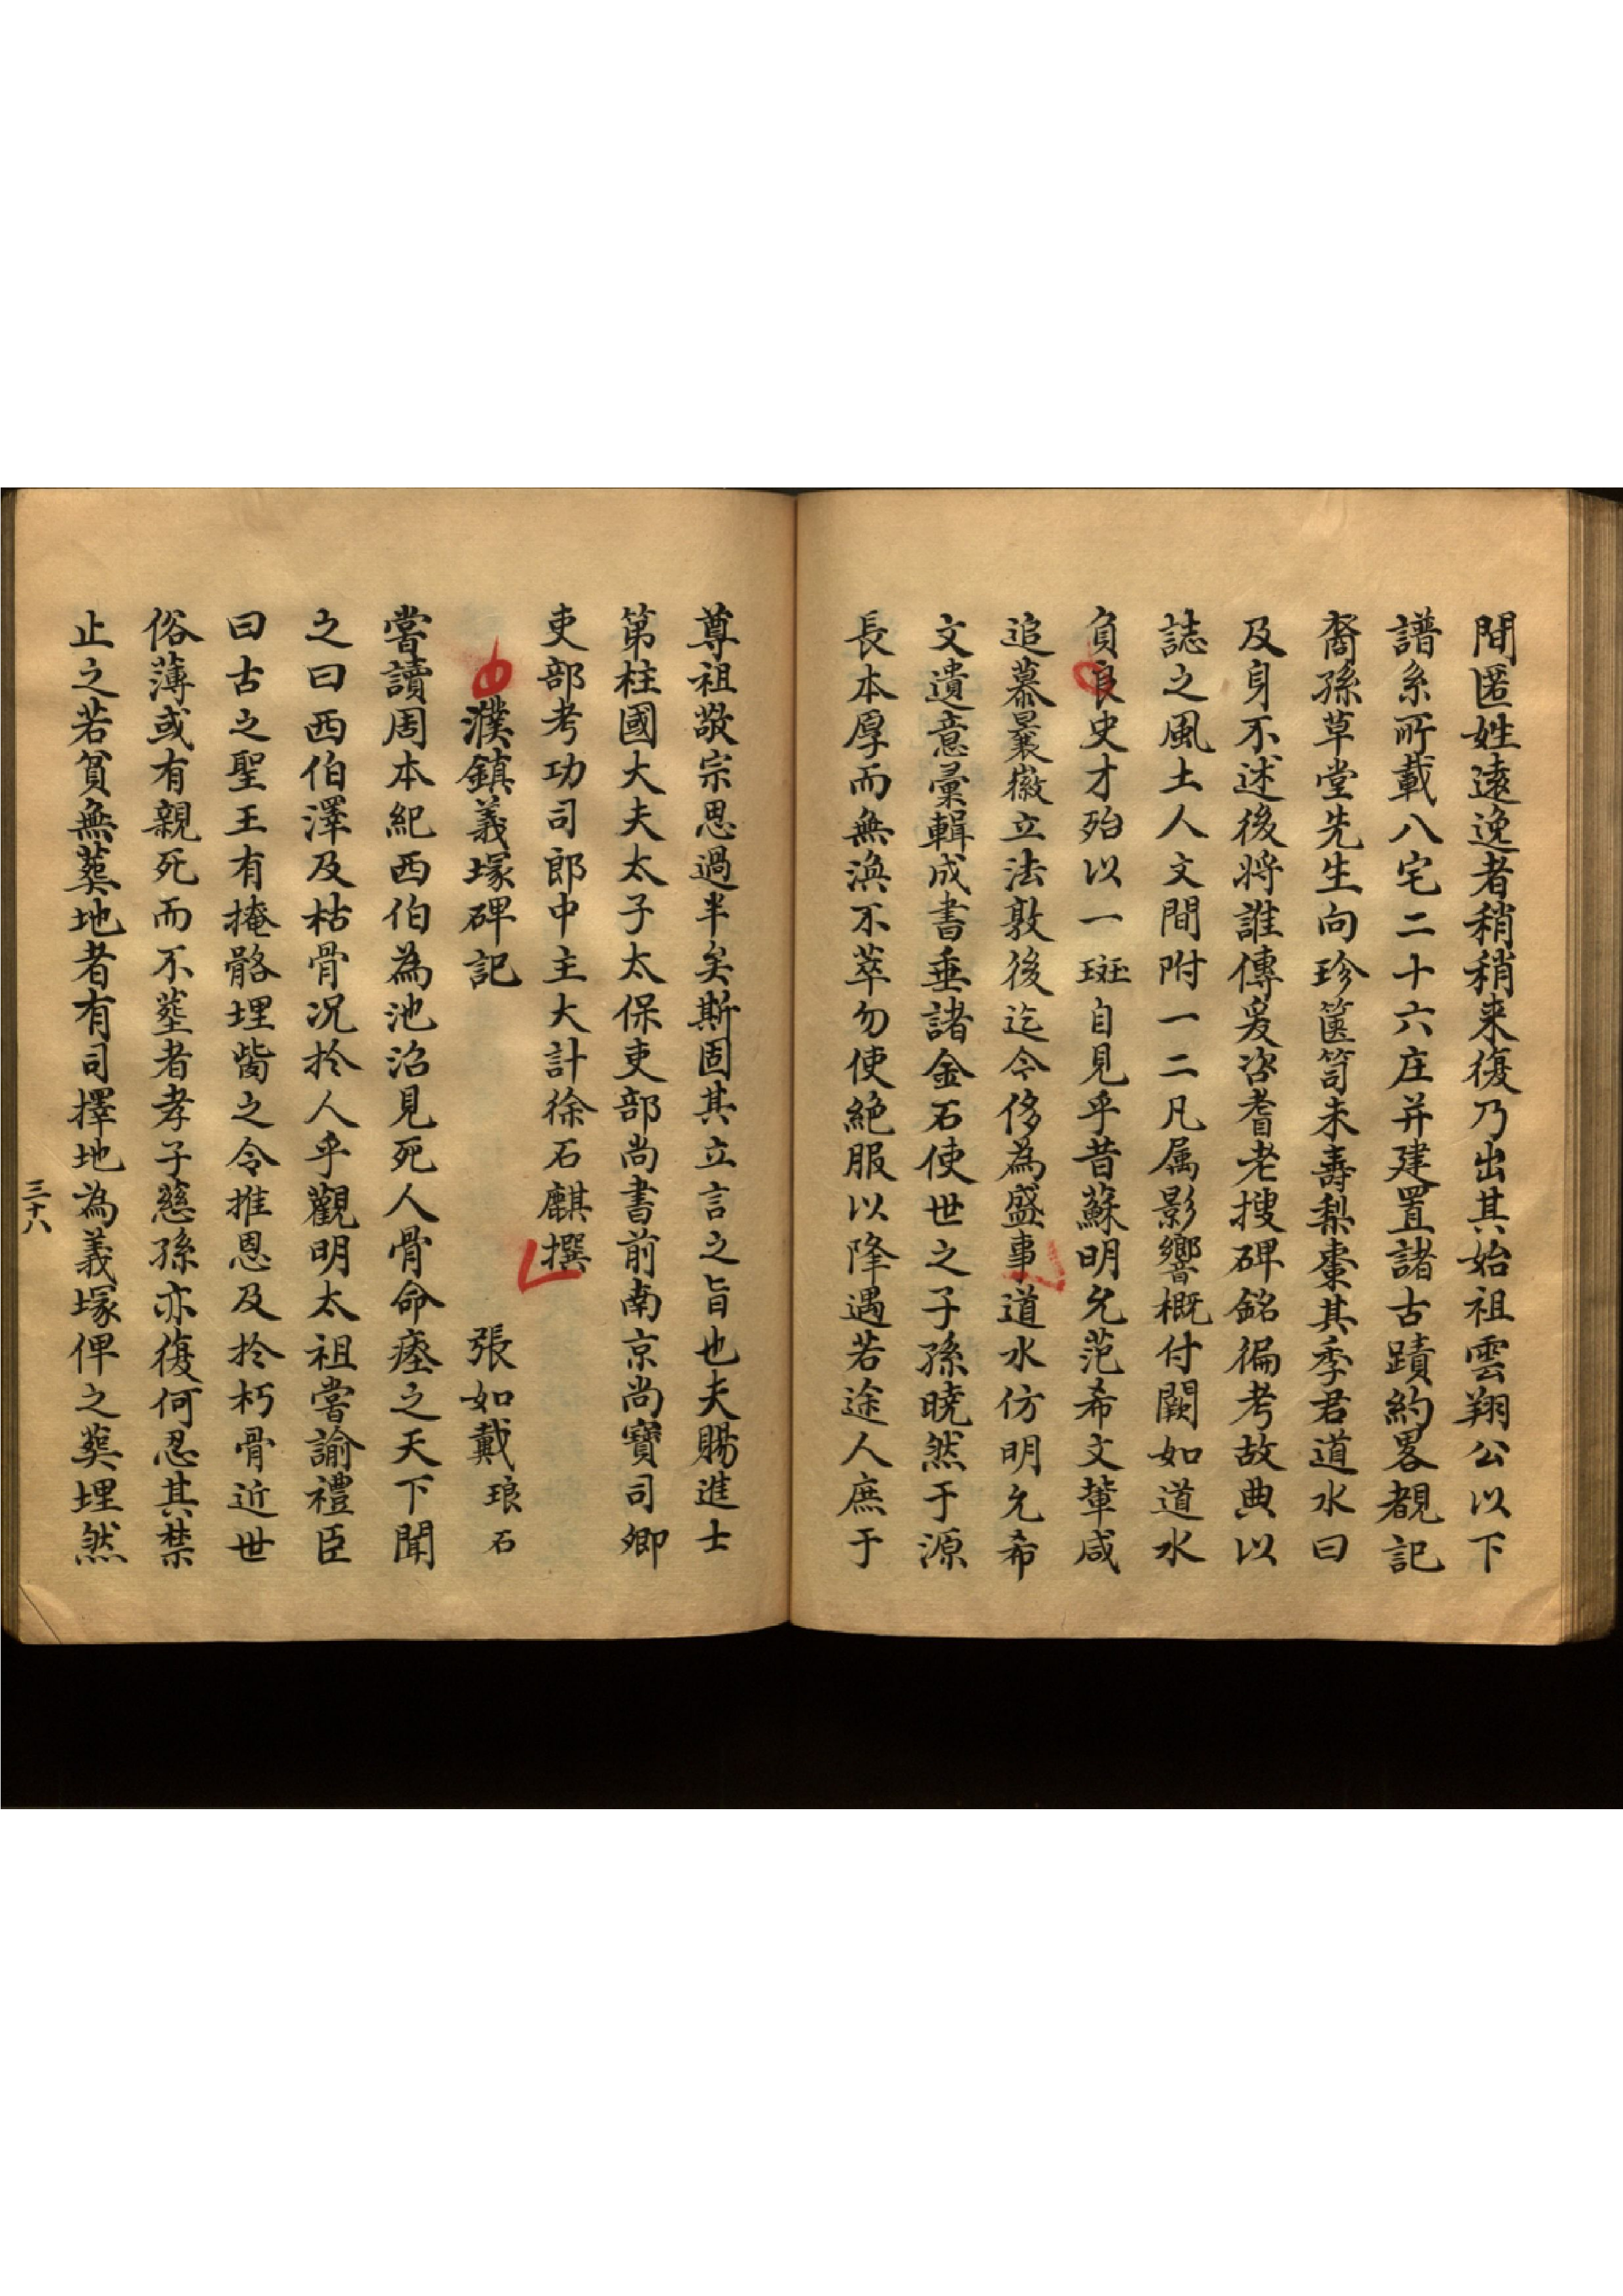 間匿姓遠逸者稍稍来復乃出其始祖雲翔公以下
譜系所載八宅二十六庄并建置諸古蹟約畧覩記
裔孫草堂先生向珍篋笥未壽梨棗其季君道水曰
及身不述後將誰傳爰咨耆老搜碑銘徧考故典以
誌之風土人文間附一二凡属影響概付闕如道水
負良史才殆以一斑自見乎昔蘇明允范希文輩咸
追慕曩徽立法敦後迄今侈為盛事道水仿明允希
文遺意彙輯成書垂諸金石使世之子孫曉然于源
長本厚而無渙不萃勿使絕服以降遇若途人庶于
尊祖敬宗思過半矣斯固其立言之旨也夫賜進士
第柱國大夫太子太保吏部尚書前南京尚寶司卿
吏部考功司郎中主大計徐石麒撰
濮鎮義塚碑記 張如戴 琅石
嘗讀周本紀西伯為池沼見死人骨命瘞之天下聞
之曰西伯澤及枯骨况扵人乎觀明太祖嘗諭禮臣
曰古之聖王有掩骼埋胔之令推恩及扵朽骨近世
俗薄或有親死而不塟者孝子慈孫亦復何忍其禁
止之若貧無葬地者有司擇地為義塚俾之葬埋然
三十八